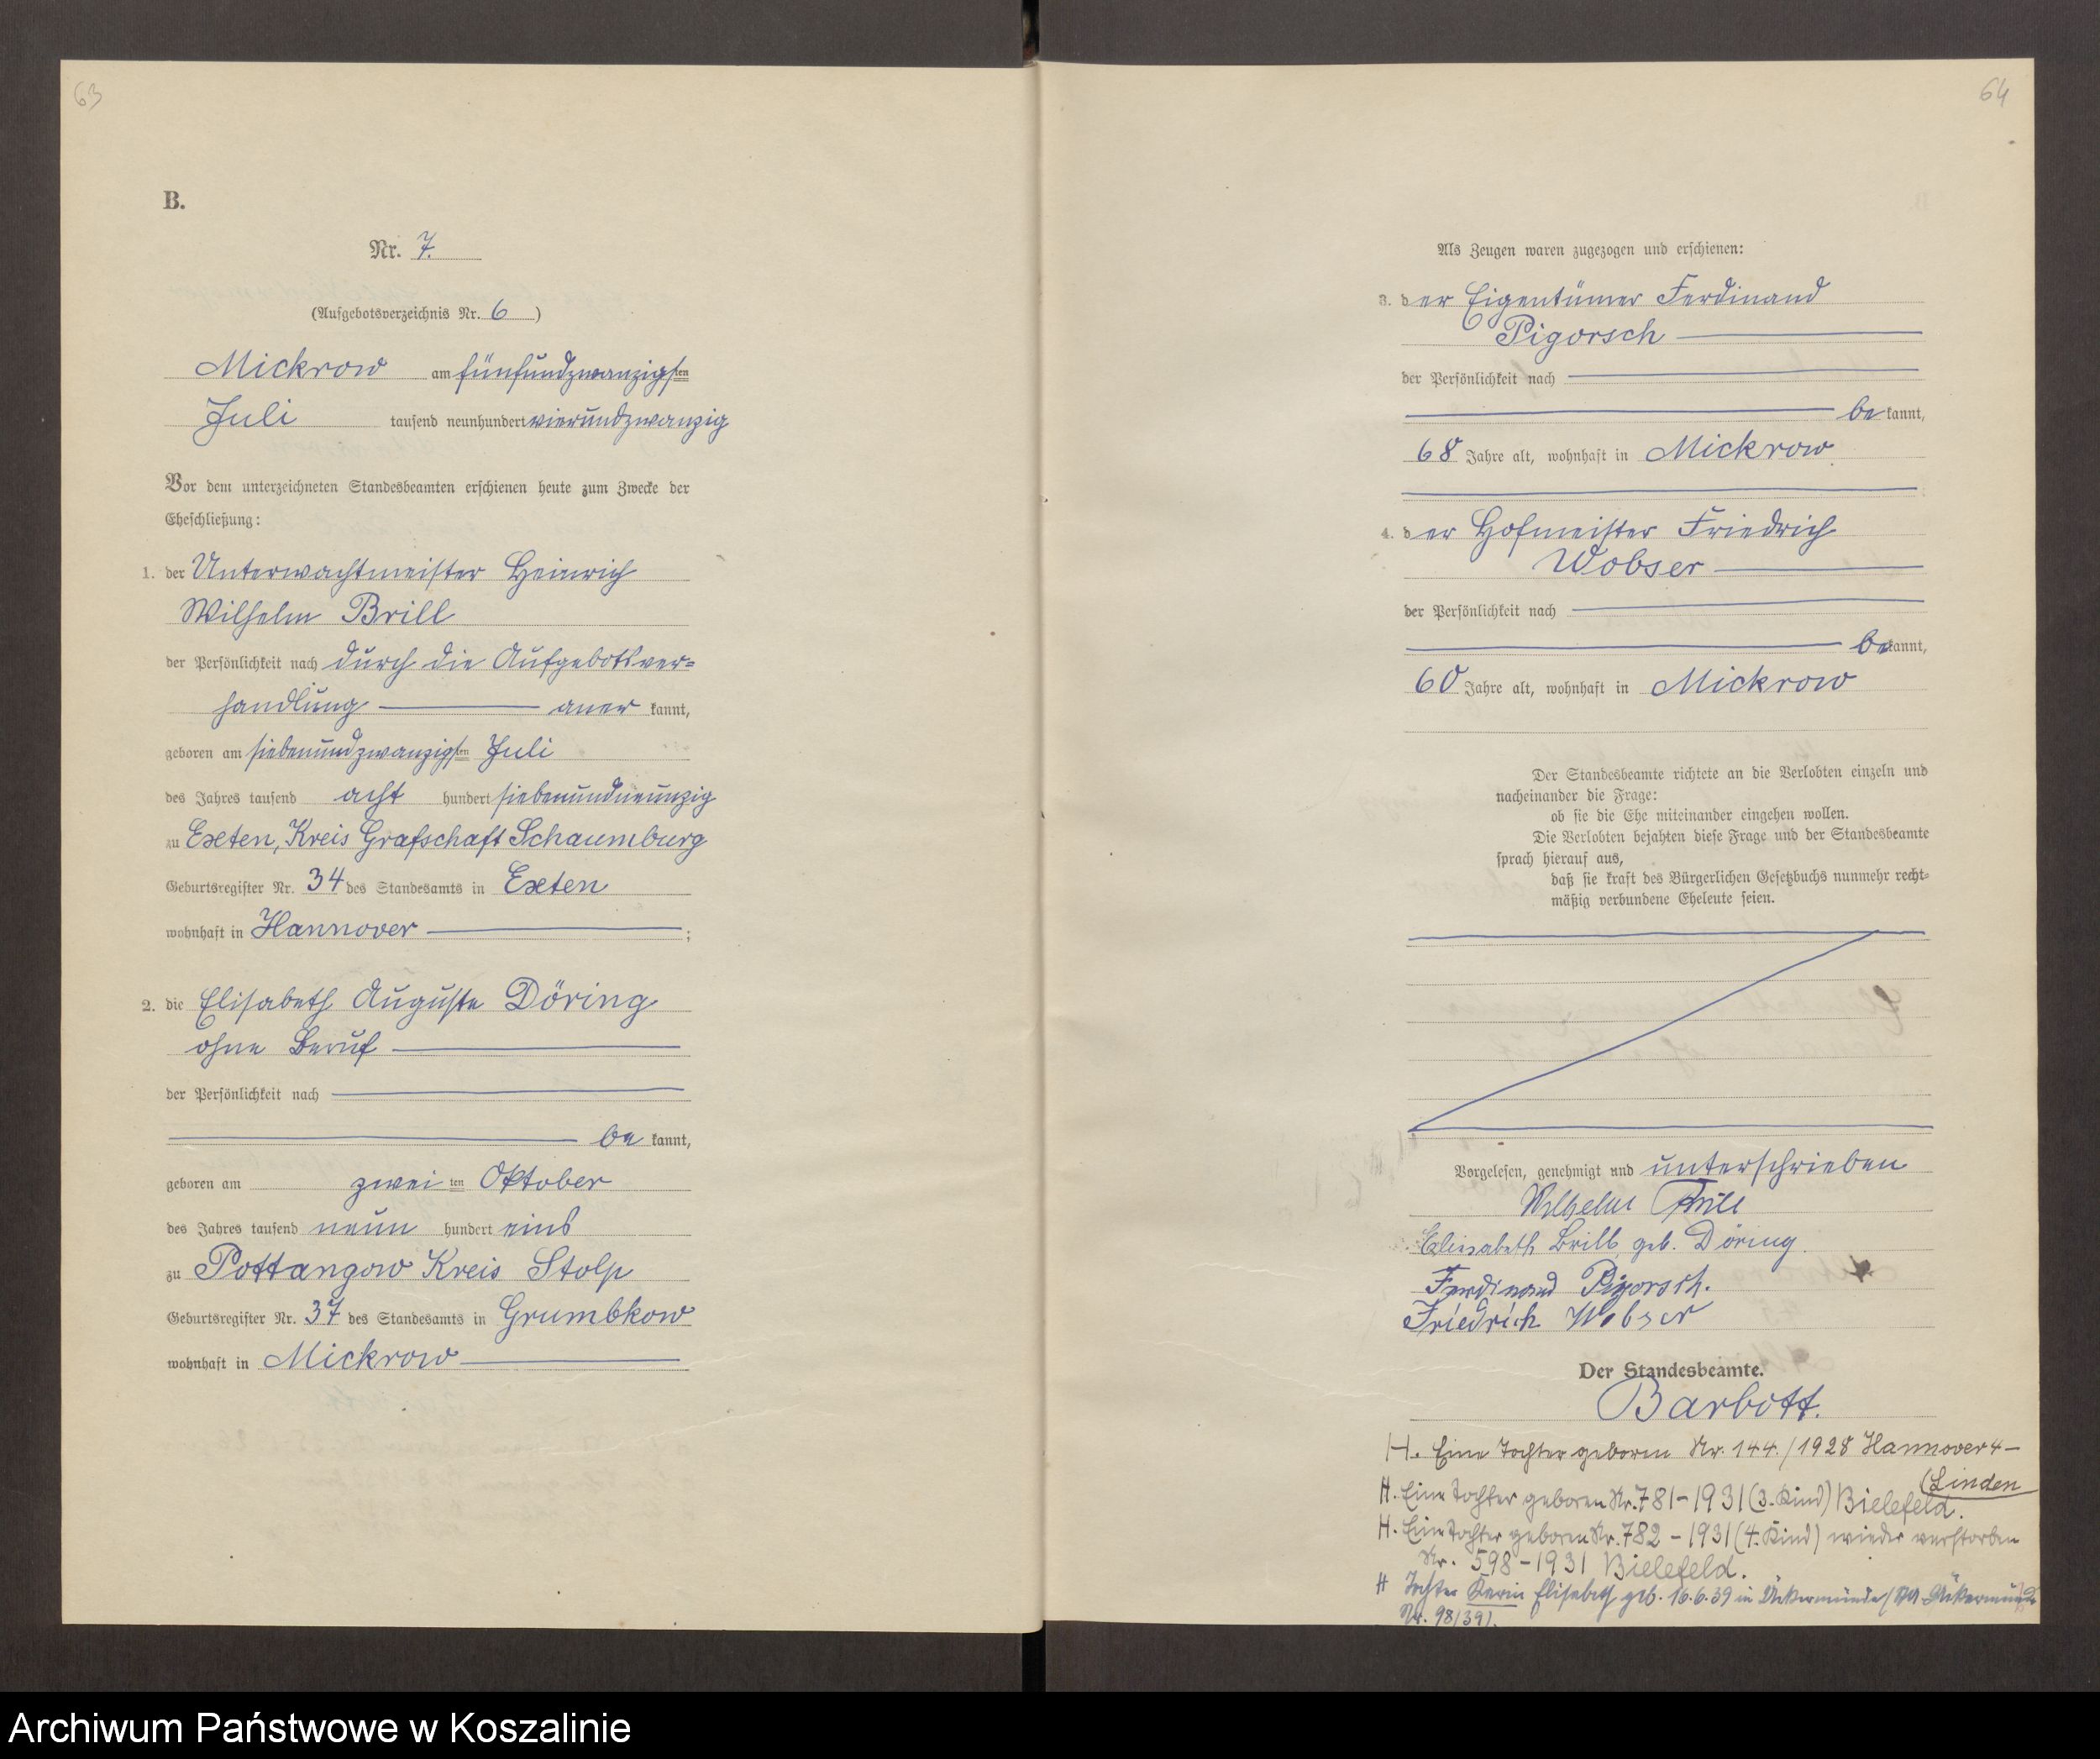 63
B.
Nr. 7.
(Aufgebotsverzeichnis Nr. 6)
Mickrow am fünfundzwanzigsten
Juli tausend neunhundert vierundzwanzig
Vor dem unterzeichneten Standesbeamten erschienen heute zum Zwecke der
Eheschließung:
1. der Unterwachtmeister Heinrich
Wilhelm Brill
der Persönlichkeit nach durch die Aufgebotsver=
handlung aner kannt,
geboren am siebenundzwanzigsten Juli
des Jahres tausend acht hundert siebenundneunzig
zu Exten, Kreis Grafschaft Schaumburg
Geburtsregister Nr. 34 des Standesamts in Exten
wohnhaft in Hannover ;
2. die Elisabeth Auguste Döring
ohne Beruf
der Persönlichkeit nach
be kannt,
geboren am zwei ten Oktober
des Jahres tausend neun hundert eins
zu Pottangow Kreis Stolp
Geburtsregister Nr. 37 des Standesamts in Grumbkow
wohnhaft in Mickrow
64
Als Zeugen waren zugezogen und erschienen:
3. der Eigentümer Ferdinand
Pigorsch
der Persönlichkeit nach
be kannt,
68 Jahre alt, wohnhaft in Mickrow
4. der Hofmeister Friedrich
Wobser
der Persönlichkeit nach
be kannt,
60 Jahre alt, wohnhaft in Mickrow
Der Standesbeamte richtete an die Verlobten einzeln und
nacheinander die Frage:
ob sie die Ehe miteinander eingehen wollen.
Die Verlobten bejahten diese Frage und der Standesbeamte
sprach hierauf aus,
daß sie kraft des Bürgerlichen Gesetzbuchs nunmehr recht=
mäßig verbundene Eheleute seien.
Vorgelesen, genehmigt und unterschrieben
Wilhelm Brill
Elisabeth Brill, geb. Döring.
Ferdinand Pigorsch.
Friedrich Wobser
Der Standesbeamte.
Barbott.
H. Eine Tochter geboren Nr. 144./1928 Hannover 4-
(Linden
H. Eine Tochter geboren Nr. 781-1931 (3. Kind) Bielefeld.
H. Eine Tochter geboren Nr. 782-1931 (4. Kind) wieder verstorben
Nr. 598-1931 Bielefeld.
H Tochter Karin Elisabeth geb. 16.6.39 in Ückermünde (StA. Ückermünde
Nr. 98/39).
Archiwum Państwowe w Koszalinie